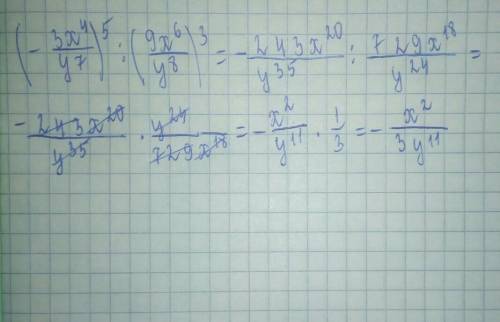 (-3x⁴/y7)⁵ : (9x⁶/y8)³ = -243x²⁰/y³⁵ : 729x¹⁸/y²⁴ =
-243x²⁰/y³⁵ · y²⁴/729x¹⁸ = -x²/y¹¹ · 1/3 = -x²/3y¹¹